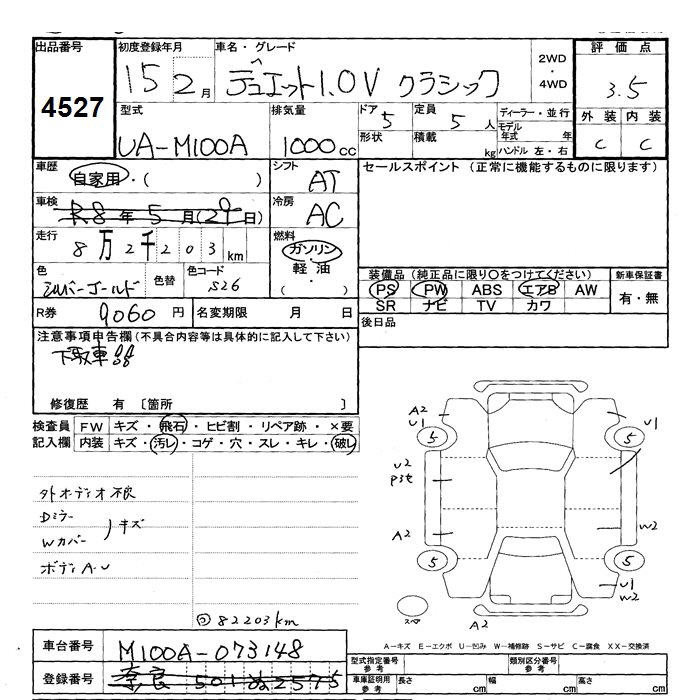 出品番号 初度登録年月 車名・グレード 2WD ・ 4WD 評価点
4527 15 2月 デュエット1.0V クラシック 3.5
型式 排気量 ドア 定員 ディーラー・並行 外装 内装
UA-M100A 1000cc 5 5人 モデル年式 年 C C
形状 積載 kg ハンドル 左・右
車歴 自家用・( ) シフト AT セールスポイント (正常に機能するものに限ります)
車検 R8年5月(29日) 冷房 AC
走行 8万2千203km 燃料 ガソリン・軽油 ( )
色 シルバーゴールド 色替 色コード S26
装備品 (純正品に限り○をつけてください) 新車保証書
PS PW ABS エアB AW 有・無
SR ナビ TV カワ
R券 9060円 名変期限 月 日 後日品
注意事項申告欄 (不具合内容等は具体的に記入して下さい)
下取車
修復歴 有 〔箇所 〕
検査員 FW キズ・飛石・ヒビ割・リペア跡・×要
記入欄 内装 キズ・汚レ・コゲ・穴・スレ・キレ・破レ
外オーディオ不良
Dミラー
Wカバー キズ
ボディA.U
82203km
A2
U1
5
U1
5
U2
P3t
A2
W2
5
5
U1
W2
スペア
A2
A-キズ E-エクボ U-凹み W-補修跡 S-サビ C-腐食 XX-交換済
車台番号 M100A-073148
登録番号 奈良 501 ぬ 2575
型式指定番号 参考 類別区分番号 参考
車庫証明用 参考 長さ cm 幅 cm 高さ cm